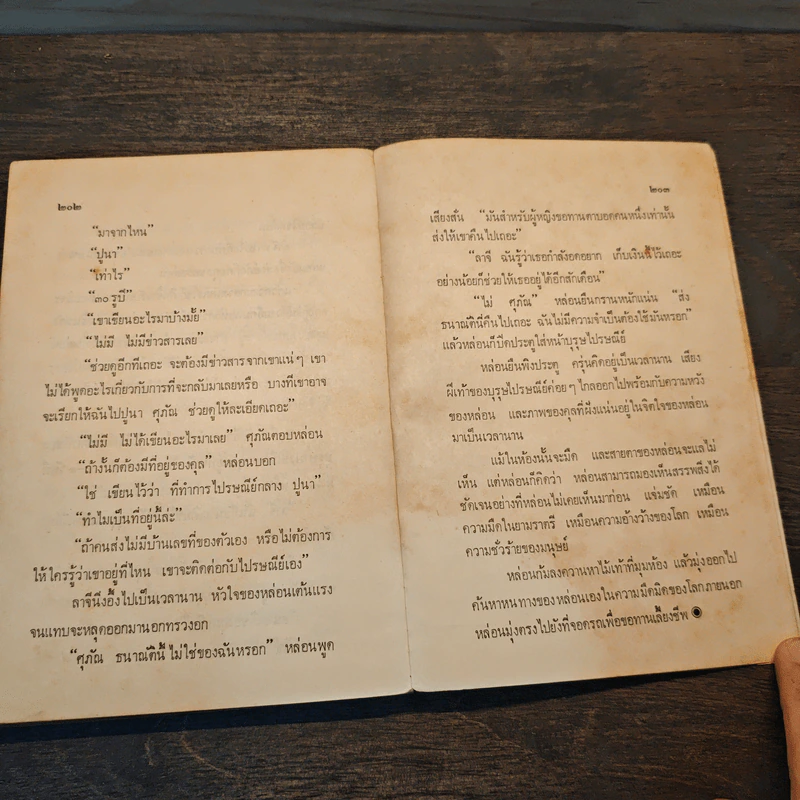 ๒๐๒
"มาจากไหน"
"ปูนา"
"เท่าไร"
"๓๐ รูปี"
"เขาเขียนอะไรมาบ้างมั้ย"
"ไม่มี ไม่มีข่าวสารเลย"
"ช่วยดูอีกทีเถอะ จะต้องมีข่าวสารจากเขาแน่ๆ เขา
ไม่ได้พูดอะไรเกี่ยวกับการที่จะกลับมาเลยหรือ บางทีเขาอาจ
จะเรียกให้ฉันไปปูนา ศุภัณ ช่วยดูให้ละเอียดเถอะ"
"ไม่มี ไม่ได้เขียนอะไรมาเลย" ศุภัณตอบหล่อน
"ถ้างั้นก็ต้องมีที่อยู่ของคุล" หล่อนบอก
"ใช่ เขียนไว้ว่า ที่ทำการไปรษณีย์กลาง ปูนา"
"ทำไมเป็นที่อยู่นี้ล่ะ"
"ถ้าคนส่งไม่มีบ้านเลขที่ของตัวเอง หรือไม่ต้องการ
ให้ใครรู้ว่าเขาอยู่ที่ไหน เขาจะติดต่อกับไปรษณีย์เอง"
ลาจีนิ่งอึ้งไปเป็นเวลานาน หัวใจของหล่อนเต้นแรง
จนแทบจะหลุดออกมานอกทรวงอก
"ศุภัณ ธนาณัตินี้ ไม่ใช่ของฉันหรอก" หล่อนพูด
๒๐๓
เสียงสั่น "มันสำหรับผู้หญิงขอทานตาบอดคนหนึ่งเท่านั้น
ส่งให้เขาคืนไปเถอะ"
"ลาจี ฉันรู้ว่าเธอกำลังอดอยาก เก็บเงินนี้ไว้เถอะ
อย่างน้อยก็ช่วยให้เธออยู่ได้อีกสักเดือน"
"ไม่ ศุภัณ" หล่อนยืนกรานหนักแน่น "ส่ง
ธนาณัตินี้คืนไปเถอะ ฉันไม่มีความจำเป็นต้องใช้มันหรอก"
แล้วหล่อนก็ปิดประตูใส่หน้าบุรุษไปรษณีย์
หล่อนยืนพิงประตู ครุ่นคิดอยู่เป็นเวลานาน เสียง
ฝีเท้าของบุรุษไปรษณีย์ค่อยๆ ไกลออกไปพร้อมกับความหวัง
ของหล่อน และภาพของคุลที่ฝังแน่นอยู่ในจิตใจของหล่อน
มาเป็นเวลานาน
แม้ในห้องนั้นจะมืด และสายตาของหล่อนจะแลไม่
เห็น แต่หล่อนก็คิดว่า หล่อนสามารถมองเห็นสรรพสิ่งได้
ชัดเจนอย่างที่หล่อนไม่เคยเห็นมาก่อน แจ่มชัด เหมือน
ความมืดในยามราตรี เหมือนความอ้างว้างของโลก เหมือน
ความชั่วร้ายของมนุษย์
หล่อนก้มลงควานหาไม้เท้าที่มุมห้อง แล้วมุ่งออกไป
ค้นหาหนทางของหล่อนเองในความมืดมิดของโลกภายนอก
หล่อนมุ่งตรงไปยังที่จอดรถเพื่อขอทานเลี้ยงชีพ